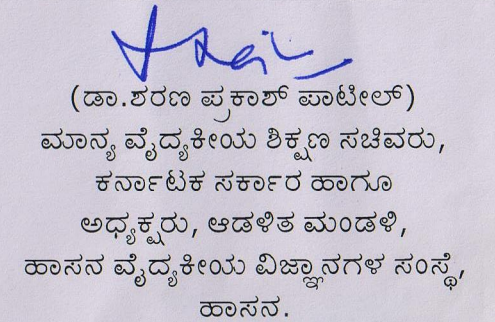 (ಡಾ.ಶರಣ ಪ್ರಕಾಶ್ ಪಾಟೀಲ್)
ಮಾನ್ಯ ವೈದ್ಯಕೀಯ ಶಿಕ್ಷಣ ಸಚಿವರು,
ಕರ್ನಾಟಕ ಸರ್ಕಾರ ಹಾಗೂ
ಅಧ್ಯಕ್ಷರು, ಆಡಳಿತ ಮಂಡಳಿ,
ಹಾಸನ ವೈದ್ಯಕೀಯ ವಿಜ್ಞಾನಗಳ ಸಂಸ್ಥೆ,
ಹಾಸನ.